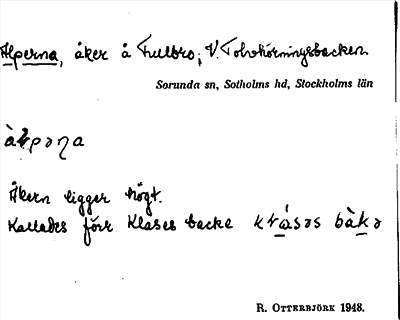 Alperna, åker å Fulbro; V. Tolvhörningsbacken
Sorunda sn, Sotholms hd, Stockholms län
Åkern ligger högt.
Kallades förr Klases backe
R. OTTERBJÖRK 1948.